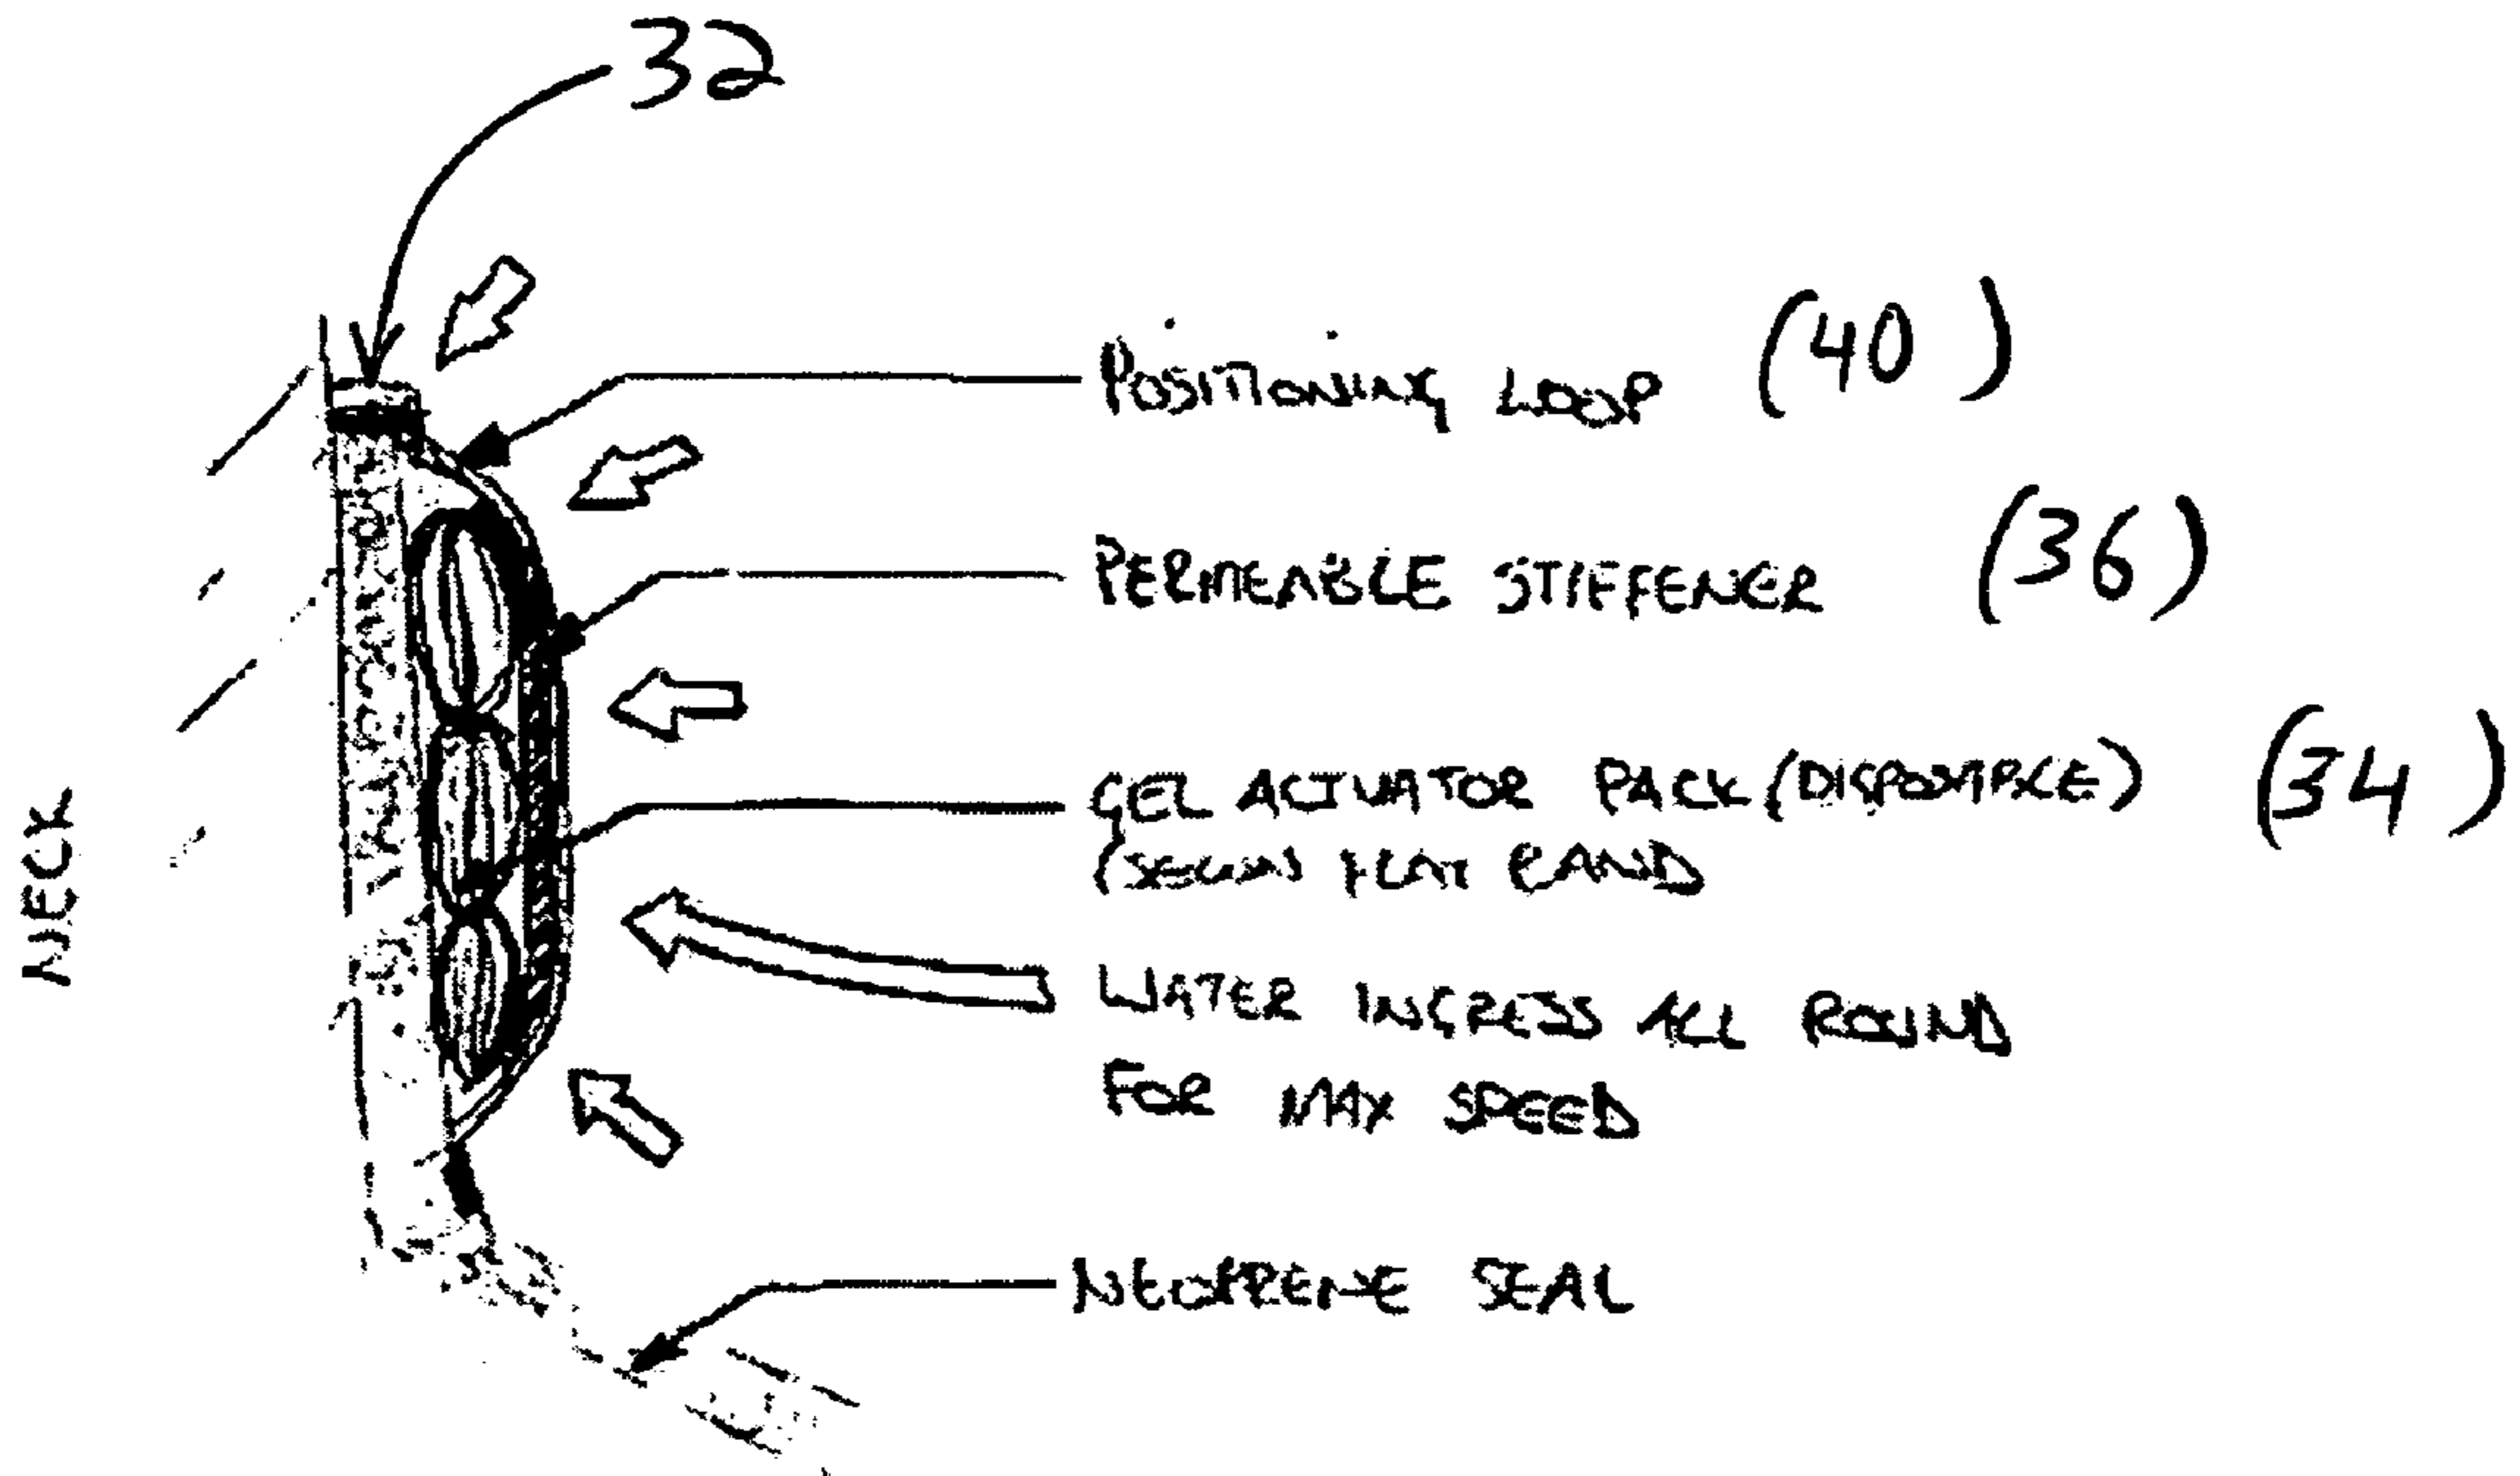 32
POSITIONING LOOP (40)
PERMEABLE STIFFENER (36)
GEL ACTIVATOR PACK (DISPOSABLE) (34)
FLAT BAND
WATER INGRESS ALL ROUND
FOR MAX SPEED
NECK
NEOPRENE SEAL